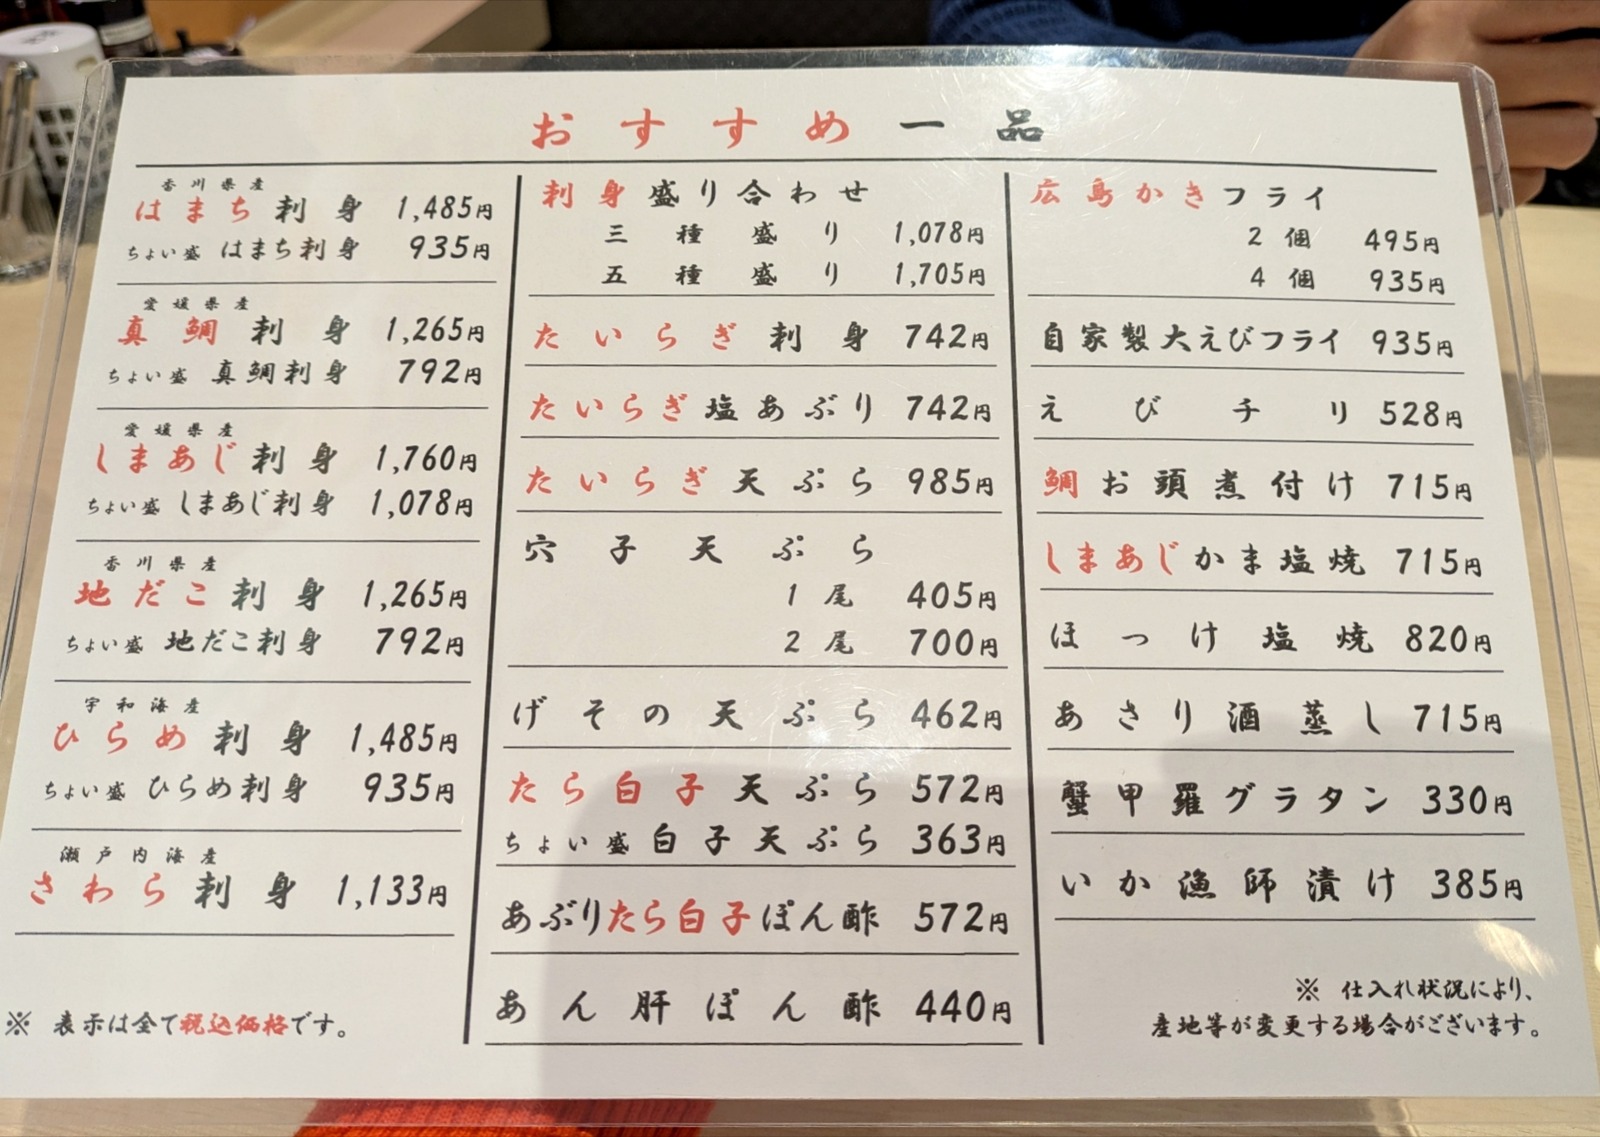 おすすめ一品
香川県産
はまち刺身 1,485円
ちょい盛 はまち刺身 935円
愛媛県産
真鯛刺身 1,265円
ちょい盛 真鯛刺身 792円
愛媛県産
しまあじ刺身 1,760円
ちょい盛 しまあじ刺身 1,078円
香川県産
地だこ刺身 1,265円
ちょい盛 地だこ刺身 792円
宇和海産
ひらめ刺身 1,485円
ちょい盛 ひらめ刺身 935円
瀬戸内海産
さわら刺身 1,133円
※ 表示は全て税込価格です。
刺身盛り合わせ
三種盛り 1,078円
五種盛り 1,705円
たいらぎ刺身 742円
たいらぎ塩あぶり 742円
たいらぎ天ぷら 985円
穴子天ぷら
1尾 405円
2尾 700円
げその天ぷら 462円
たら白子天ぷら 572円
ちょい盛 白子天ぷら 363円
あぶりたら白子ぽん酢 572円
あん肝ぽん酢 440円
広島かきフライ
2個 495円
4個 935円
自家製大えびフライ 935円
えびチリ 528円
鯛お頭煮付け 715円
しまあじかま塩焼 715円
ほっけ塩焼 820円
あさり酒蒸し 715円
蟹甲羅グラタン 330円
いか漁師漬け 385円
※ 仕入れ状況により、
産地等が変更する場合がございます。